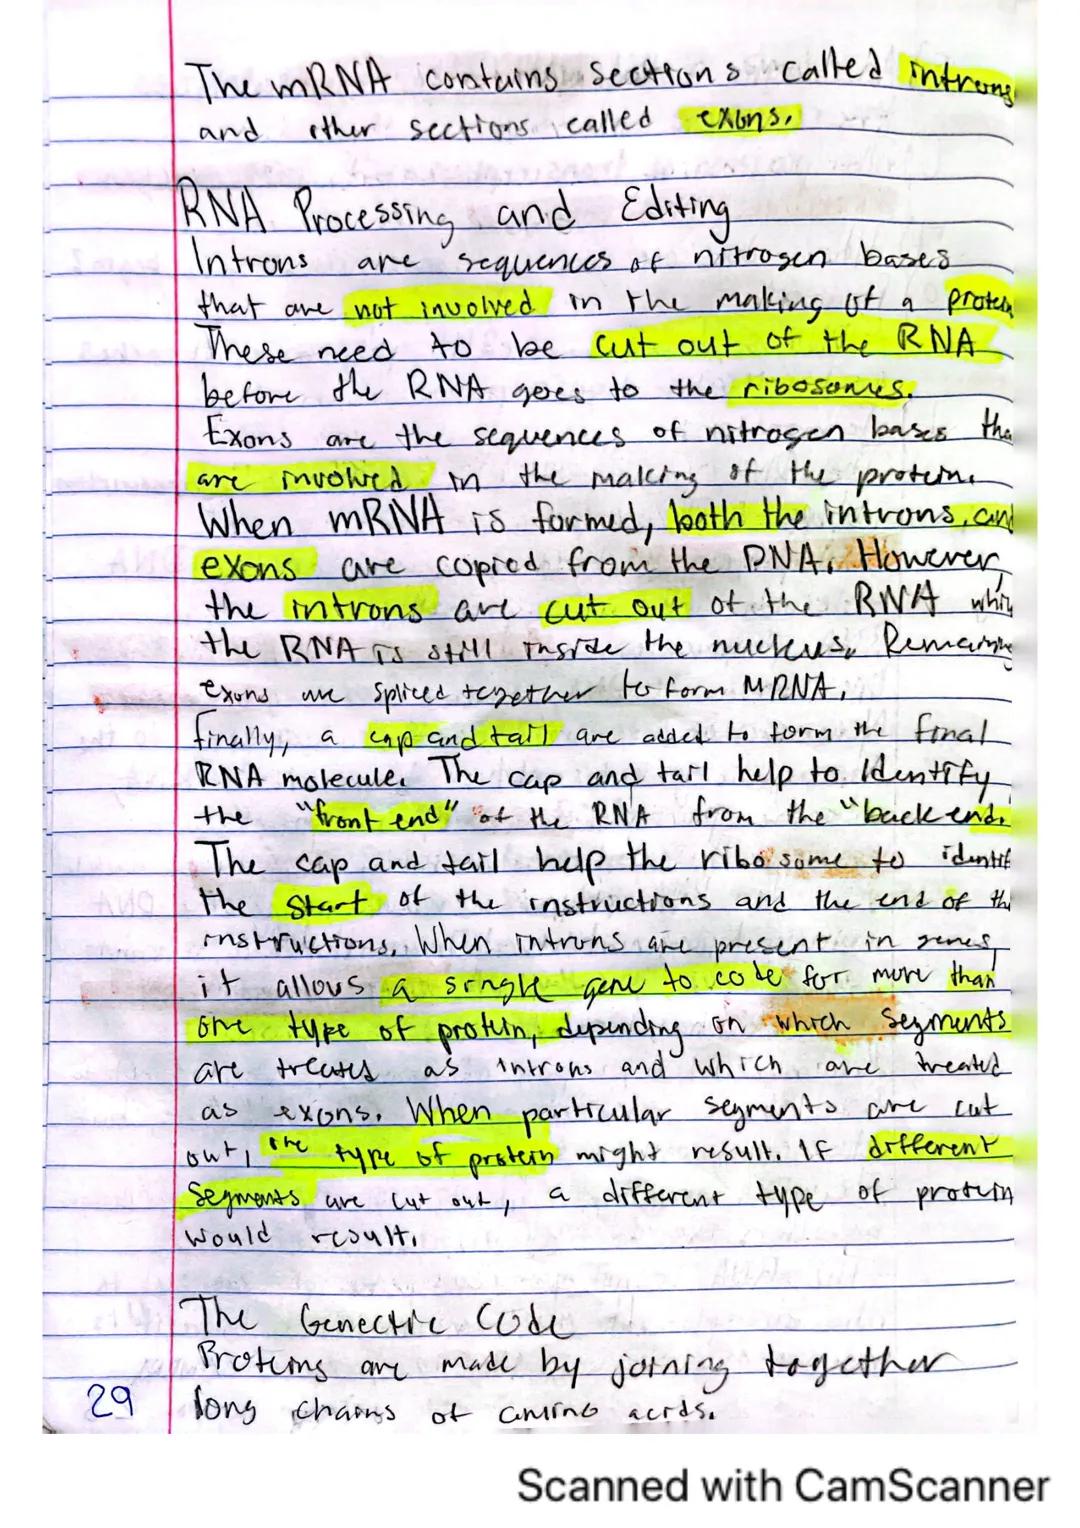 The mRNA contains sections called introns
and other sections called exons.
RNA Processing and Editing
Introns are sequences of nitrogen bases
that are not involved in the making of a protein
These need to be cut out of the RNA
before the RNA goes to the ribosomes.
Exons are the sequences of nitrogen bases tha
are involved in the making of the protein.
When mRNA is formed, both the introns, and
exons are copied from the DNA. However,
the introns are cut out of the RNA whil
the RNA is still inside the nucleus. Remaining
exons are spliced together to form MRNA.
Finally, a cap and tail are added to form the final
RNA molecule. The cap and tail help to Identify
the "front end" of the RNA from the "back end.
The cap and tail help the ribosome to identif
the start of the instructions and the end of th
instructions. When introns are present in genes,
it allows a single gene to code for more than
one type of protein, depending on which segments
are treates as introns and which are treated
as exons. When particular segments are cut
out, one type of protein might result. If different
segments are cut out, a different type of protein
would result.
The Genectic Code
Proteins are made by joining together
29 long chains of amino acids.
Scanned with CamScanner